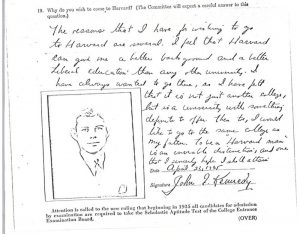 18. Why do you wish to come to Harvard? (The Committee will expect a careful answer to this
question.)
The reasons that I have for wishing to go
to Harvard are several. I feel that Harvard
can give me a better background and a better
liberal education than any other university. I
have always wanted to go there, as I have felt
that it is not just another college,
but is a university with something
definite to offer. Then too, I would
like to go to the same college as
my father. To be a "Harvard man"
is an enviable distinction, and one
that I sincerely hope I shall attain.
April 23, 1935
Signature John F. Kennedy
Attention is called to the new ruling that beginning in 1935 all candidates for admission
by examination are required to take the Scholastic Aptitude Test of the College Entrance
Examination Board.
(OVER)